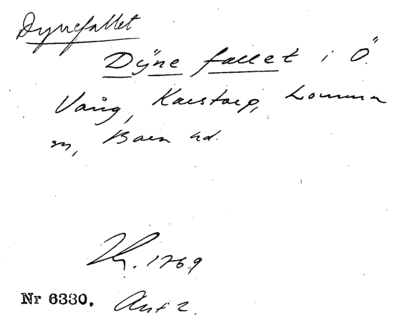 Dynefallet
Dÿne fallet i Ö.
Vång, Karstorp, Lomma
Bara hd.
1769
Nr 6330. Akt 2.